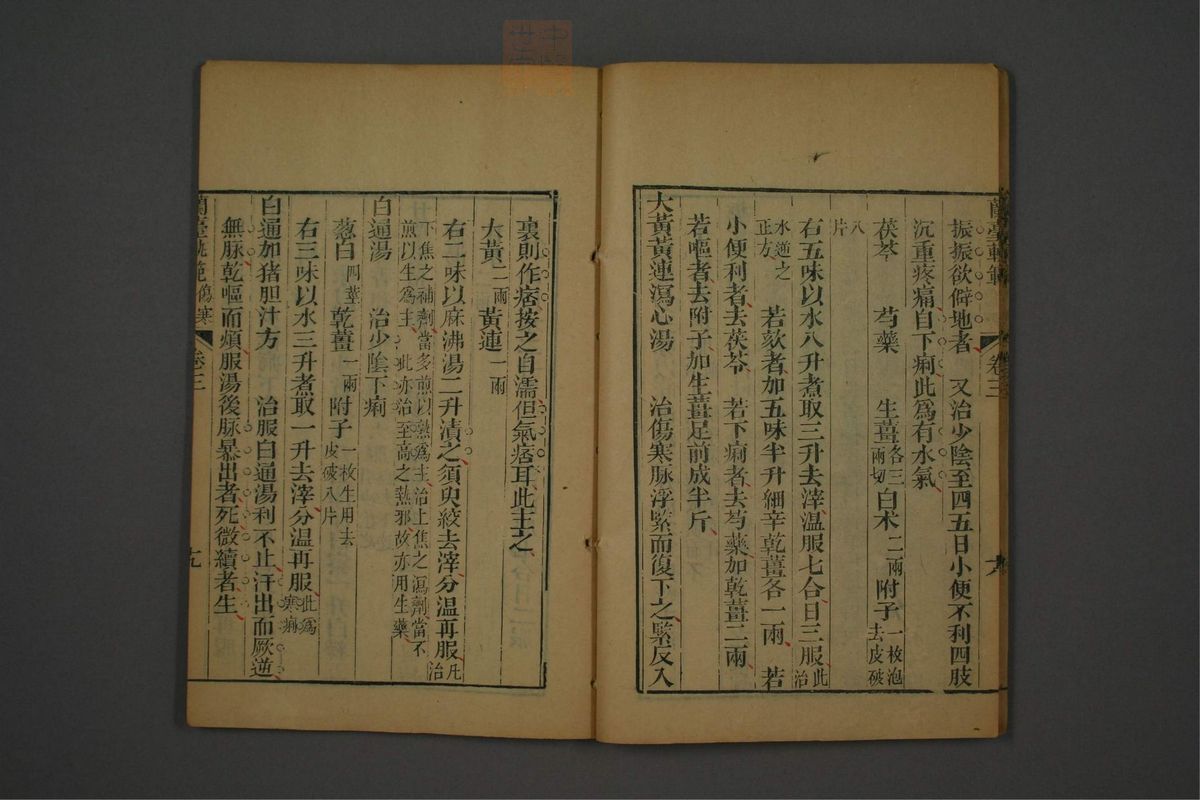 振振欲僻地者 又治少陰至四五日小便不利四肢
沉重疼痛自下痢此爲有水氣
茯苓 芍藥 生薑各三兩切白术二兩附子一枚泡去皮破
八片
右五味以水八升煮取三升去滓溫服七合日三服此治
水逆之正方 若欬者加五味半升細辛乾薑各一兩 若
小便利者去茯苓 若下痢者去芍藥加乾薑二兩
若嘔者去附子加生薑足前成半斤
大黃黃連瀉心湯 治傷寒脉浮緊而復下之緊反入
裏則作痞按之自濡但氣痞耳此主之
大黃二兩黃連一兩
右二味以麻沸湯二升漬之須臾絞去滓分温再服凡治
下焦之補劑當多煎以熟爲主治上焦之瀉劑當不
煎以生爲主此亦治至高之熱邪故亦用生藥
白通湯 治少陰下痢
葱白四莖乾薑一兩附子一枚生用去皮破八片
右三味以水三升煮取一升去滓分温再服此爲寒痢
白通加猪胆汁方 治服白通湯利不止汗出而厥逆
無脉乾嘔而煩服湯後脉暴出者死微續者生
蘭臺軌範傷寒 卷三 十九